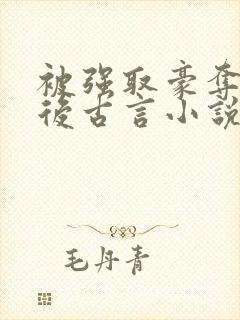 被强取豪夺
後古言小說
毛丹青